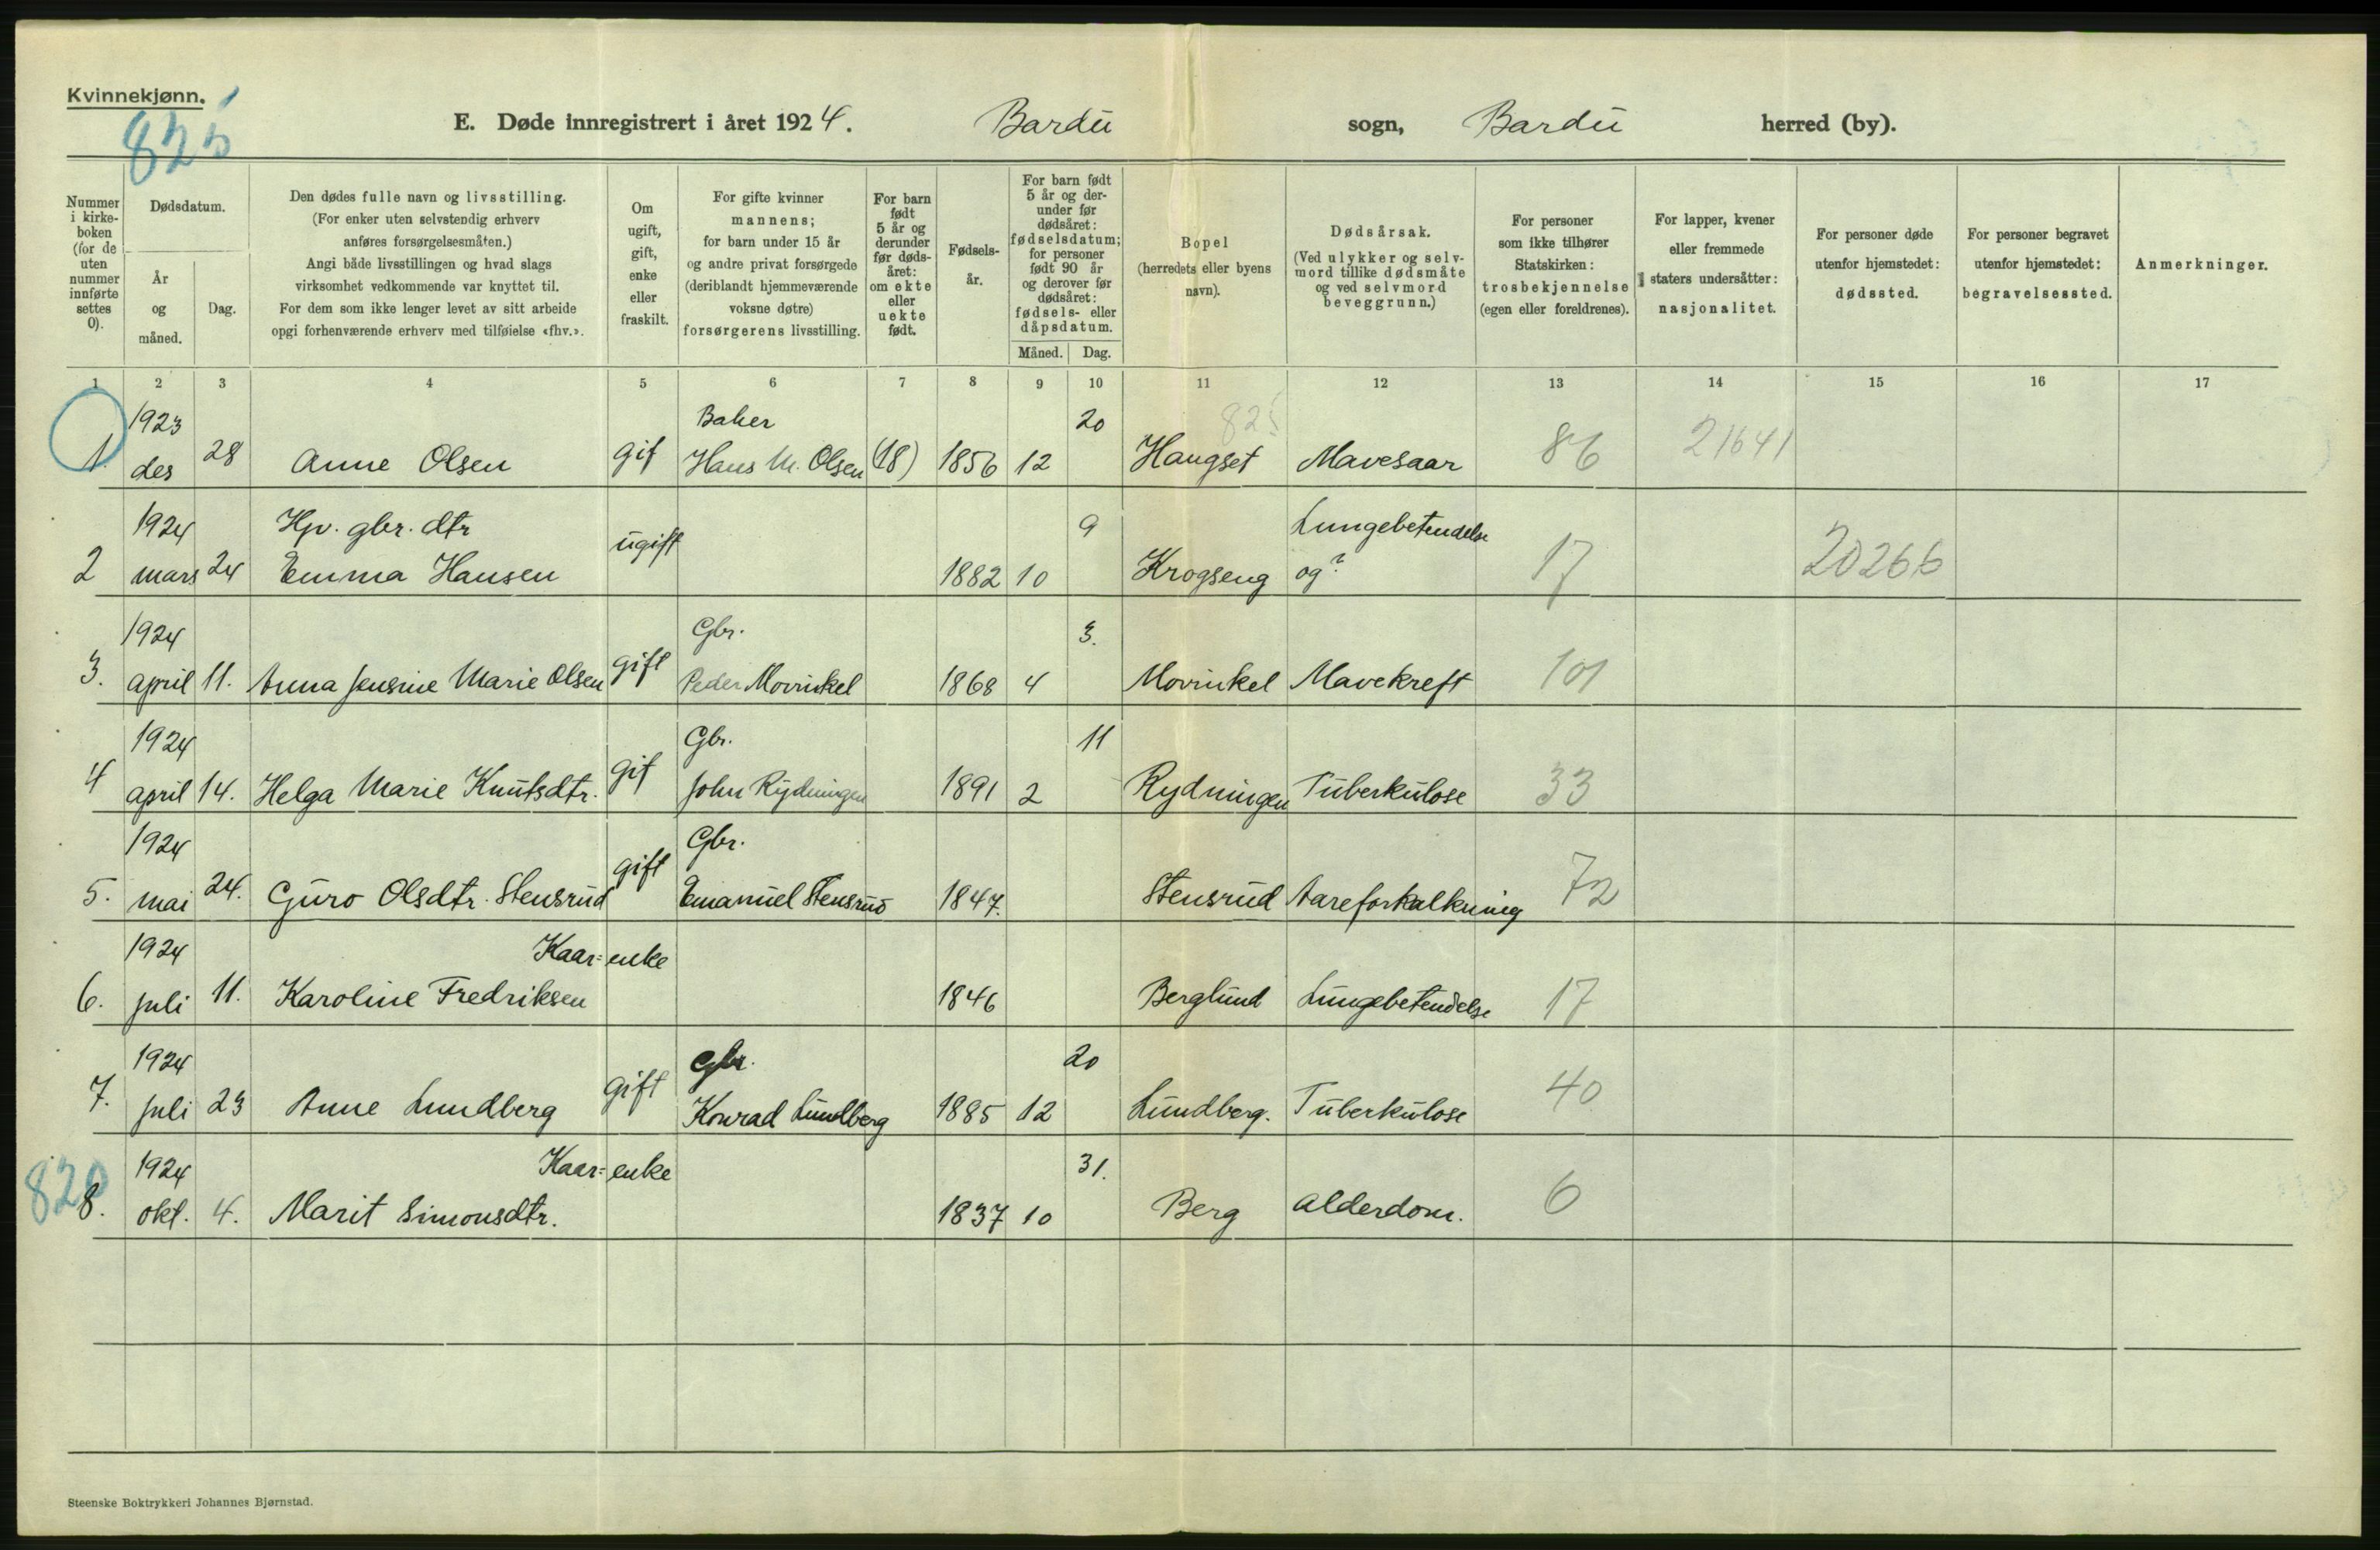 Kvinnekjønn.
825
E. Døde innregistrert i året 1924. Bardu sogn, Bardu herred (by).
Nummer i kirke-boken (for de uten nummer innførte settes 0).
Dødsdatum.
År og måned.
Dag.
Den dødes fulle navn og livsstilling.
(For enker uten selvstendig erhverv
anføres forsørgelsesmåten.)
Angi både livsstillingen og hvad slags
virksomhet vedkommende var knyttet til.
For dem som ikke lenger levet av sitt arbeide
opgi forhenværende erhverv med tilføielse «fhv.».
Om
ugift,
gift,
enke
eller
fraskilt.
For gifte kvinner
mannens;
for barn under 15 år
og andre privat forsørgede
(deriblandt hjemmeværende
voksne døtre)
forsørgerens livsstilling.
For barn
født
5 år og
derunder
før døds-
året:
om ekte
eller
uekte
født.
Fødsels-
år.
For barn født
5 år og der-
under før
dødsåret:
fødselsdatum;
for personer
født 90 år
og derover før
dødsåret:
fødsels- eller
dåpsdatum.
Måned. Dag.
Bopel
(herredets eller byens
navn).
Dødsårsak.
(Ved ulykker og selv-
mord tillike dødsmåte
og ved selvmord
beveggrunn.)
For personer
som ikke tilhører
Statskirken:
trosbekjennelse
(egen eller foreldrenes).
For lapper, kvener
eller fremmede
staters undersåtter:
nasjonalitet.
For personer døde
utenfor hjemstedet:
dødssted.
For personer begravet
utenfor hjemstedet:
begravelsessted.
Anmerkninger.
1 2 3 4 5 6 7 8 9 10 11 12 13 14 15 16 17
1923 Baker 20 825
1. des 28 Anne Olsen gif Hans M. Olsen (18) 1856 12 Haugset Mavesaar 86 21641
1924 Hp. gbr. dtr 9 Lungebetendelse
2 mars 24 Emma Hansen ugift 1882 10 Krogseng og? 17 20266
1924 Gbr. 3.
3. april 11. Anna Jensine Marie Olsen gift Peder Movinkel 1868 4 Movinkel Mavekreft 101
1924 Gbr. 11
4 april 14. Helga Marie Knutsdtr. gif John Rydningen 1891 2 Rydningen Tuberkulose 33
1924 Gbr.
5. mai 24. Guro Olsdtr. Stensrud gift Emanuel Stensrud 1847. Stensrud Aareforkalkning 72
1924 Kaar=enke
6. juli 11. Karoline Fredriksen 1846 Berglund Lungebetendelse 17
1924 Gbr. 20
7. juli 23 Anne Lundberg gift Konrad Lundberg 1885 12 Lundberg. Tuberkulose 40
1924 Kaar=enke 31.
820 8. okt. 4. Marit Simonsdtr. 1837 10 Berg Alderdom. 6
Steenske Boktrykkeri Johannes Bjørnstad.